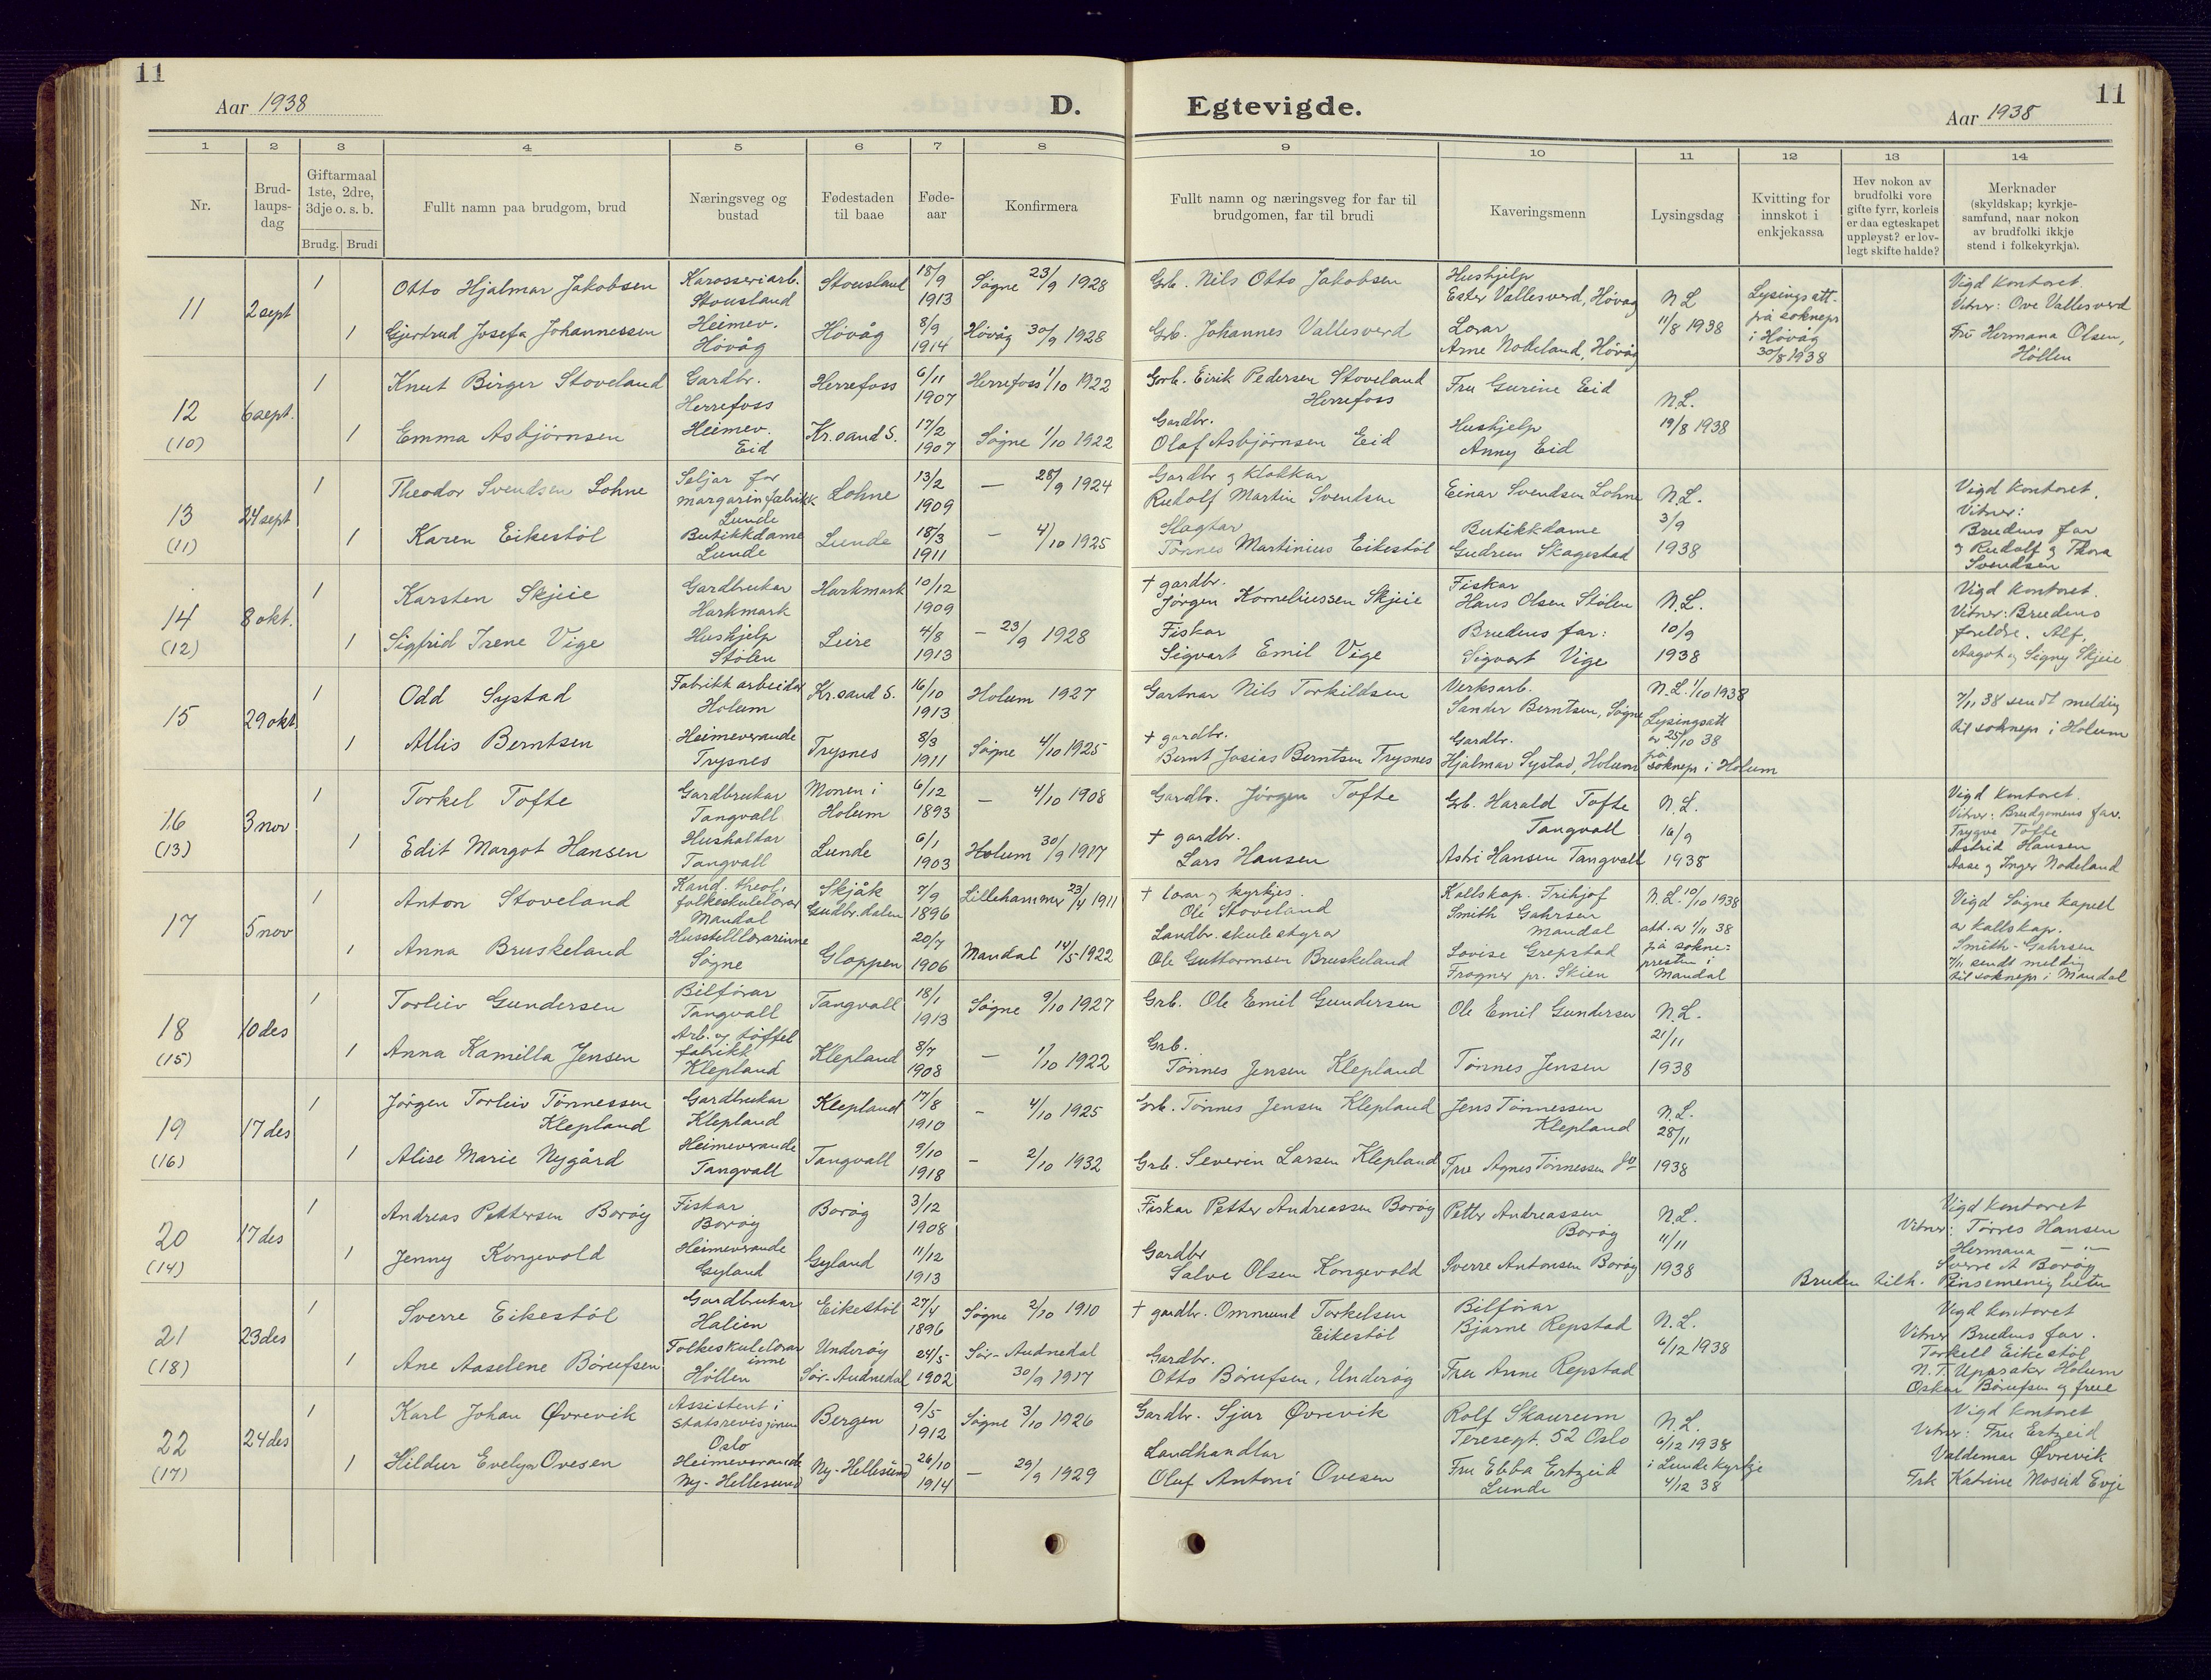 11
Aar 1938
D.
Egtevigde.
Aar 1938
11
1 2 3 4 5 6 7 8 9 10 11 12 13 14
Nr.
Brud-
laups-
dag
Giftarmaal
1ste, 2dre,
3dje o. s. b.
Brudg. Brudi
Fullt namn paa brudgom, brud
Næringsveg og
bustad
Fødestaden
til baae
Føde-
aar
Konfirmera
Fullt namn og næringsveg for far til
brudgomen, far til brudi
Kaveringsmenn
Lysingsdag
Kvitting for
innskot i
enkjekassa
Hev nokon av
brudfolki vore
gifte fyrr, korleis
er daa egteskapet
uppløyst? er lov-
legt skifte halde?
Merknader
(skyldskap; kyrkje-
samfund, naar nokon
av brudfolki ikkje
stend i folkekyrkja).
11
2 sept
1
Otto Hjalmar Jakobsen
Karosseriarb.
Stousland
Stousland
18/9
1913
Søgne 23/9 1928
Grb. Nils Otto Jakobsen
Hushjelp
Ester Vallesverd, Høvåg
N L
11/8 1938
Lysingsatt.
frå soknepr
i Høvåg
30/8 1938
Vigd kontoret.
Vitner: Ove Vallesverd
Fru Hermana Olsen,
Høllen
1
Gjertrud Josefa Johannessen
Heimev.
Høvåg
Høvåg
8/9
1914
Høvåg 30/9 1928
Grb. Johannes Vallesverd
Lærar
Arne Nodeland, Høvåg
12
(10)
6 sept.
1
Knut Birger Stoveland
Gardbr.
Herrefoss
Herrefoss
6/11
1907
Herrefoss 1/10 1922
Grb. Eirik Pedersen Stoveland
Herrefoss
Fru Gurine Eid
N.L.
19/8 1938
1
Emma Asbjørnsen
Heimev.
Eid
Kr.sand S.
17/2
1907
Søgne 1/10 1922
Gardbr.
Olaf Asbjørnsen Eid
Hushjelp
Anny Eid
13
(11)
24 sept
1
Theodor Svendsen Lohne
Seljar for
margarinfabrikk
Lunde
Lohne
13/2
1909
— 28/9 1924
Gardbr og klokkar
Rudolf Martin Svendsen
Einar Svendsen Lohne
N.L.
3/9
1938
Vigd kontoret.
Vitner:
Brudens far
og Rudolf og Thora
Svendsen
1
Karen Eikestøl
Butikkdame
Lunde
Lunde
18/3
1911
— 4/10 1925
Slagtar
Tønnes Martinius Eikestøl
Butikkdame
Gudrun Skagestad
14
(12)
8 okt.
1
Karsten Skjeie
Gardbrukar
Harkmark
Harkmark
10/12
1909
† gardbr.
Jørgen Korneliussen Skjeie
Fiskar
Hans Olsen Stølen
N.L.
10/9
1938
Vigd kontoret.
Vitner: Brudens
foreldre. Alf,
Aagot og Signy Skjeie
1
Sigfrid Irene Vige
Hushjelp
Stølen
Leire
4/8
1913
— 23/9 1928
Fiskar
Sigvart Emil Vige
Brudens far:
Sigvart Vige
15
29 okt
1
Odd Systad
Fabrikkarbeidar
Holum
Kr.sand S.
16/10
1913
Holum 1927
Gartnar Nils Torkildsen
Verksarb.
Sander Berntsen, Søgne
N.L. 1/10 1938
Lysingsatt
av 25/10 38
frå soknepr i Holum
7/11 38 sendt melding
til soknepr i Holum
1
Allis Berntsen
Heimeverande
Trysnes
Trysnes
8/3
1911
Søgne 4/10 1925
† gardbr.
Bernt Josias Berntsen Trysnes
Gardbr.
Hjalmar Systad, Holum
16
(13)
3 nov
1
Torkel Tofte
Gardbrukar
Tangvall
Monen i
Holum
6/12
1893
— 4/10 1908
Gardbr. Jørgen Tofte
Grb. Harald Tofte
Tangvall
N.L.
16/9
1938
Vigd kontoret.
Vitner: Brudgomens far.
Trygve Tofte
Astrid Hansen
Aase og Inger Nodeland
1
Edit Margot Hansen
Hushaldar
Tangvall
Lunde
6/1
1903
Holum 30/9 1917
† gardbr.
Lars Hansen
Astri Hansen Tangvall
17
5 nov
1
Anton Stoveland
Kand. theol.,
folkeskulelærar
Mandal
Skjåk
Gudbr.dalen
7/9
1896
Lillehammer 23/4 1911
† lærar og kyrkjes.
Ole Stoveland
Kallskap. Trihjof
Smith Gahrsen
Mandal
N.L. 10/10 1938
att. av 1/11 38
frå sokne-
presten i
Mandal
Vigd Søgne kapell
av kallskap.
Smith-Gahrsen
7/11 sendt melding
til soknepr. i Mandal
1
Anna Bruskeland
Husstellærarinne
Søgne
Gloppen
20/7
1906
Mandal 14/5 1922
Landbr.skulestyrar
Ole Guttormsen Bruskeland
Lovise Grepstad
Frogner pr. Skien
18
(15)
10 des
1
Torleiv Gundersen
Bilførar
Tangvall
Tangvall
18/1
1913
Søgne 9/10 1927
Grb. Ole Emil Gundersen
Ole Emil Gundersen
N.L.
21/11
1938
1
Anna Kamilla Jensen
Arb. ved tøffel
fabrikk
Klepland
Klepland
8/7
1908
— 1/10 1922
Grb.
Tønnes Jensen Klepland
Tønnes Jensen
19
(16)
17 des
1
Jørgen Torleiv Tønnessen
Klepland
Gardbrukar
Klepland
Klepland
17/8
1910
— 4/10 1925
Grb. Tønnes Jensen Klepland
Jens Tønnessen
Klepland
N.L.
28/11
1938
1
Alise Marie Nygård
Heimeverande
Tangvall
Tangvall
9/10
1918
— 2/10 1932
Grb. Severin Larsen Klepland
Fru Agnes Tønnessen do
20
(14)
17 des
1
Andreas Pettersen Borøy
Fiskar
Borøy
Borøy
3/12
1908
Fiskar Petter Andreassen Borøy
Petter Andreassen
Borøy
N.L.
11/11
1938
Vigd kontoret
Vitner: Tørres Hansen
Hermana — " —
Sverre A Borøy
Bruden tilh. Pinsemenigheten
1
Jenny Kongevold
Heimeverande
Gyland
Gyland
11/12
1913
Gardbr
Salve Olsen Kongevold
Sverre Antonsen Borøy
21
(18)
23 des
1
Sverre Eikestøl
Gardbrukar
Halien
Eikestøl
27/4
1896
Søgne 2/10 1910
† gardbr. Ommund Torkelsen
Eikestøl
Bilførar
Bjarne Repstad
N.L.
6/12 1938
Vigd kontoret
Vitner Brudens far.
Torkell Eikestøl
N.T. Uppsaker Holum
Oskar Børufsen og frue
1
Ane Aaselene Børufsen
Folkeskulelærar
inne
Høllen
Underøy
Sør-Audnedal
24/5
1902
Sør-Audnedal
30/9 1917
Gardbr.
Otto Børufsen, Underøy
Fru Anne Repstad
22
(17)
24 des
1
Karl Johan Øvrevik
Assistent i
statsrevisjonen
Oslo
Bergen
9/5
1912
Søgne 3/10 1926
Gardbr. Sjur Øvrevik
Rolf Skaureum
Teresegt. 52 Oslo
N.L.
6/12 1938
i Lunde kyrkje
4/12 38
Vigd kontoret
Vitner: Fru Ertzeid
Valdemar Øvrevik
Frk Katrine Moseid Evje
1
Hildur Evelyn Ovesen
Heimeverande
Ny-Hellesund
Ny-Hellesund
26/10
1914
— 29/9 1929
Landhandlar
Oluf Antoni Ovesen
Fru Ebba Ertzeid
Lunde